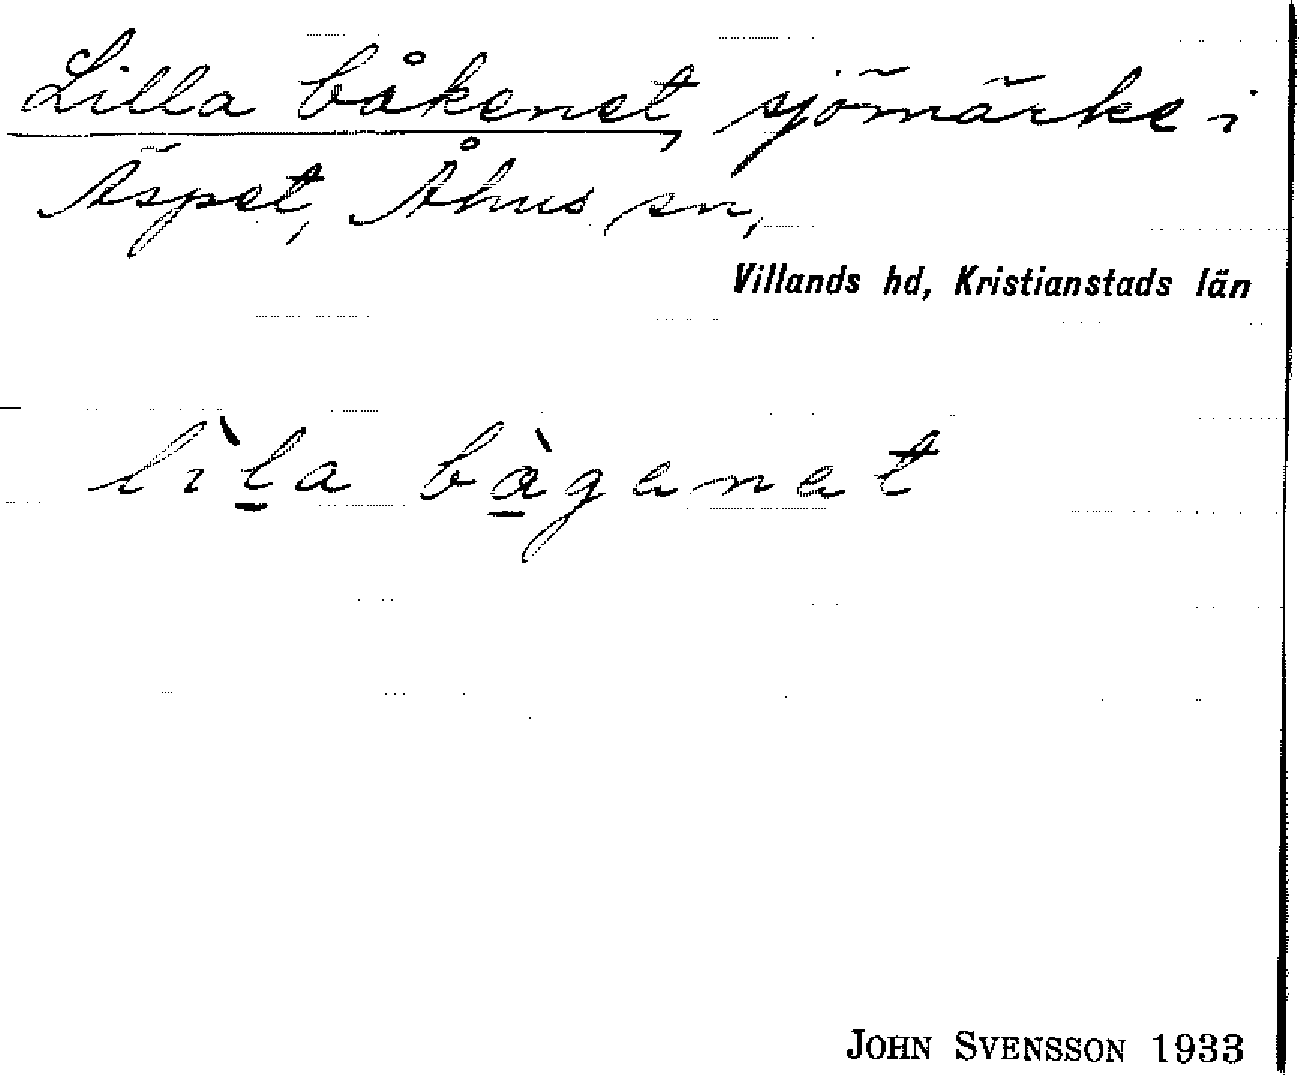 Lilla båkenet, sjömärke i
Äspet, Åhus sn,
Villands hd, Kristianstads län
lìl̲a bà̲genet
JOHN SVENSSON 1933